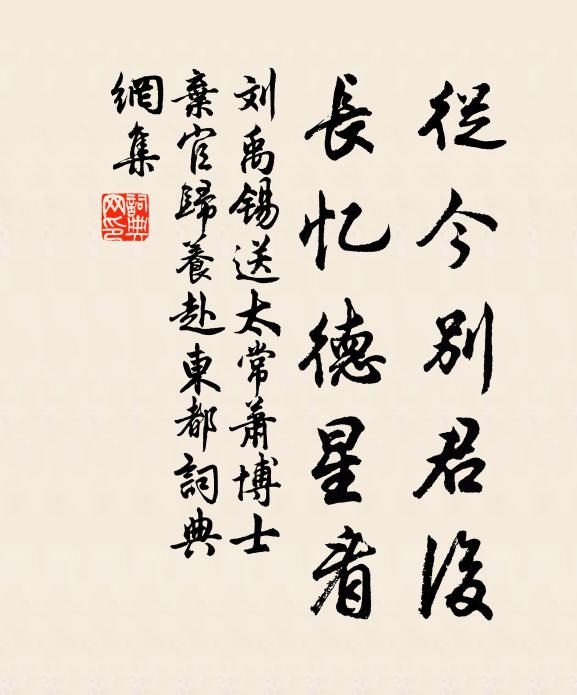 從今別君後
長忆德星看
刘禹锡送太常蕭博士
棄官歸養赴東都詞典
網集
詞典
网印